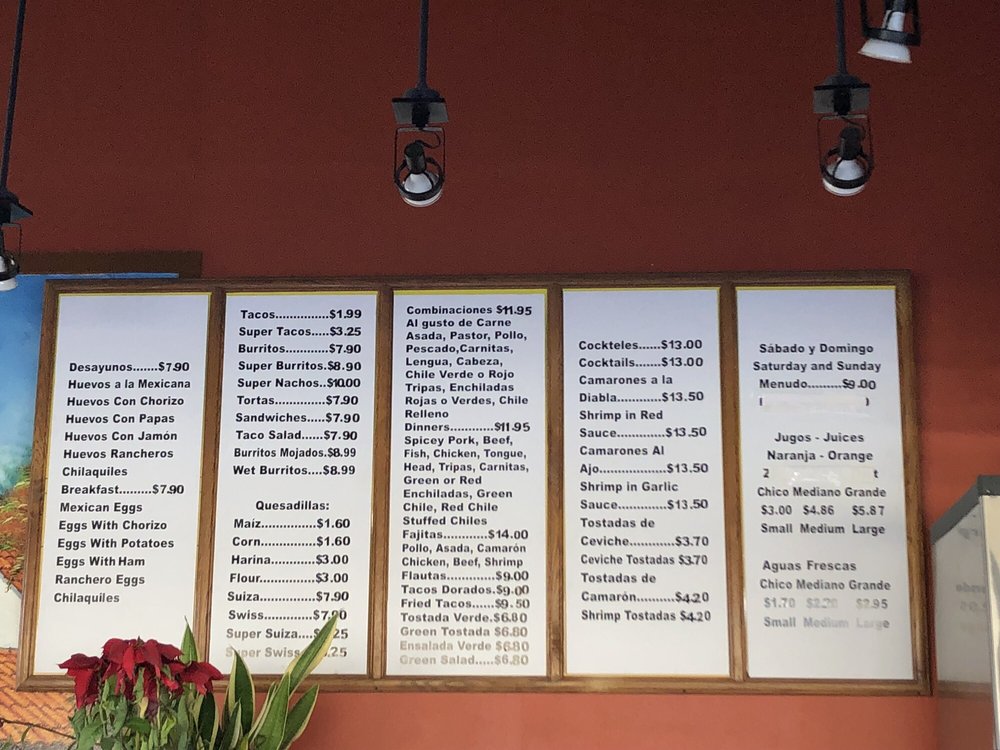 Desayunos.......$7.90
Huevos a la Mexicana
Huevos Con Chorizo
Huevos Con Papas
Huevos Con Jamón
Huevos Rancheros
Chilaquiles
Breakfast.........$7.90
Mexican Eggs
Eggs With Chorizo
Eggs With Potatoes
Eggs With Ham
Ranchero Eggs
Chilaquiles
Tacos...............$1.99
Super Tacos.....$3.25
Burritos............$7.90
Super Burritos.$8.90
Super Nachos..$10.00
Tortas..............$7.90
Sandwiches.....$7.90
Taco Salad......$7.90
Burritos Mojados.$8.99
Wet Burritos....$8.99
Quesadillas:
Maíz................$1.60
Corn................$1.60
Harina.............$3.00
Flour...............$3.00
Suiza...............$7.90
Swiss..............$7.90
Super Suiza....
Super Swiss
Combinaciones $11.95
Al gusto de Carne
Asada, Pastor, Pollo,
Pescado,Carnitas,
Lengua, Cabeza,
Chile Verde o Rojo
Tripas, Enchiladas
Rojas o Verdes, Chile
Relleno
Dinners...........$11.95
Spicey Pork, Beef,
Fish, Chicken, Tongue,
Head, Tripas, Carnitas,
Green or Red
Enchiladas, Green
Chile, Red Chile
Stuffed Chiles
Fajitas............$14.00
Pollo, Asada, Camarón
Chicken, Beef, Shrimp
Flautas.............$9.00
Tacos Dorados.$9.00
Fried Tacos.....$9.50
Tostada Verde.$6.80
Green Tostada $6.80
Ensalada Verde $6.80
Green Salad.....$6.80
Cockteles......$13.00
Cocktails.......$13.00
Camarones a la
Diabla............$13.50
Shrimp in Red
Sauce.............$13.50
Camarones Al
Ajo..................$13.50
Shrimp in Garlic
Sauce.............$13.50
Tostadas de
Ceviche............$3.70
Ceviche Tostadas $3.70
Tostadas de
Camarón..........$4.20
Shrimp Tostadas $4.20
Sábado y Domingo
Saturday and Sunday
Menudo..........$9.00
Jugos - Juices
Naranja - Orange
2 t
Chico Mediano Grande
$3.00 $4.86 $5.87
Small Medium Large
Aguas Frescas
Chico Mediano Grande
$1.70 $2.20 $2.95
Small Medium Large